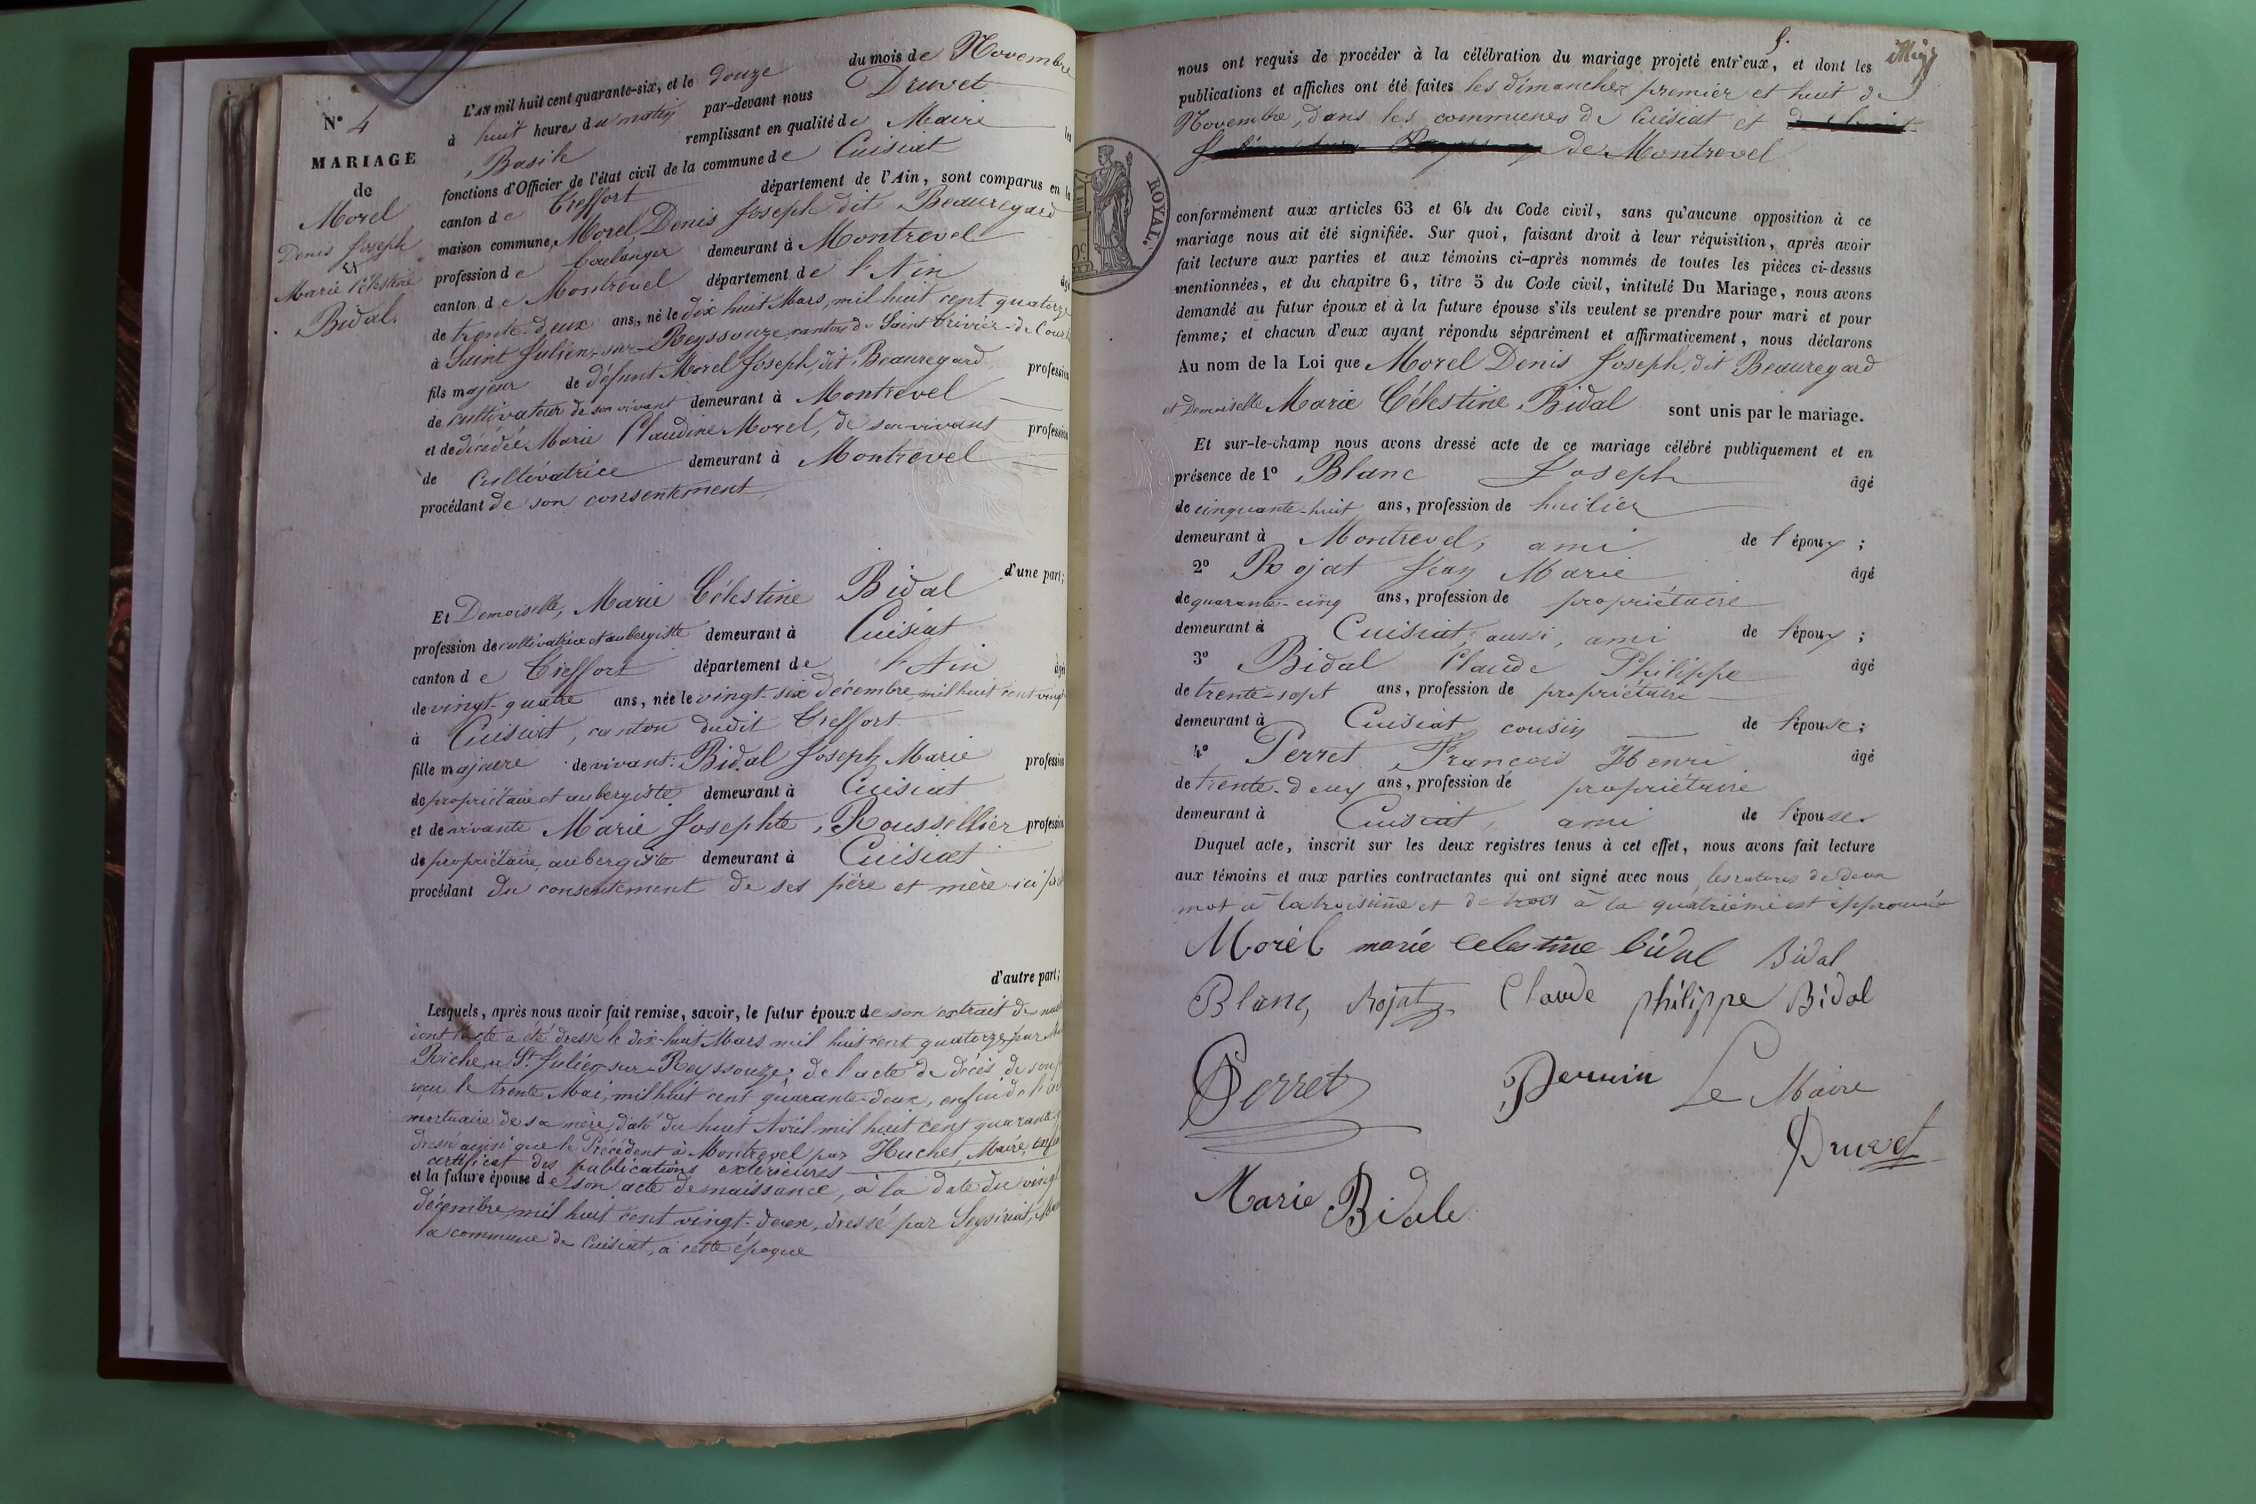 N° 4
MARIAGE
de
Morel
Denis Joseph
et
Marie Célestine
Bidal.
L'AN mil huit cent quarante-six, et le douze du mois de Novembre
à huit heures du matin par-devant nous Druvet
Basile remplissant en qualité de Maire les
fonctions d'Officier de l'état civil de la commune de Cuisiat
canton de Treffort département de l'Ain, sont comparus en la
maison commune, Morel, Denis Joseph dit Beauregard
profession de boulanger demeurant à Montrevel
canton de Montrevel département de l'Ain âgé
de trente-deux ans, né le dix huit Mars, mil huit cent quatorze
à Saint Julien-sur-Reyssouze, canton de Saint Trivier-de-Courtes
fils majeur de défunt Morel Joseph, dit Beauregard, profession
de cultivateur de son vivant demeurant à Montrevel
et de décédée Marie Claudine Morel, de son vivant profession
de Cultivatrice demeurant à Montrevel
procédant de son consentement,
d'une part;
Et Demoiselle, Marie Célestine Bidal
profession de cultivatrice et aubergiste demeurant à Cuisiat
canton de Treffort département de l'Ain âgée
de vingt-quatre ans, née le vingt-six décembre mil huit cent vingt
à Cuisiat, canton dudit Treffort
fille majeure de vivant: Bidal Joseph Marie profession
de propriétaire et aubergiste demeurant à Cuisiat
et de vivante Marie Josephte Rousselier profession
de propriétaire, aubergiste demeurant à Cuisiat
procédant du consentement de ses père et mère ici
d'autre part;
Lesquels, après nous avoir fait remise, savoir, le futur époux de son extrait de
dont l'acte a été dressé le dix-huit Mars mil huit cent quatorze par
Riche, à St Julien sur Reyssouze; de l'acte de décès de son
reçu le trente Mai, mil huit cent quarante-deux, enfin de l'
mortuaire de sa mère, daté du huit Avril mil huit cent quarante
dressé ainsi que le Précédent à Montrevel par Huchet, Maire,
certificat des publications extérieures
et la future épouse de son acte de naissance, à la date du vingt
décembre, mil huit cent vingt-deux, dressé par
la commune de Cuisiat, à cette époque
nous ont requis de procéder à la célébration du mariage projeté entr'eux, et dont les
publications et affiches ont été faites les dimanches premier et huit de
Novembre, dans les communes de Cuisiat et
de Montrevel
ROYAL.
conformément aux articles 63 et 64 du Code civil, sans qu'aucune opposition à ce
mariage nous ait été signifiée. Sur quoi, faisant droit à leur réquisition, après avoir
fait lecture aux parties et aux témoins ci-après nommés de toutes les pièces ci-dessus
mentionnées, et du chapitre 6, titre 5 du Code civil, intitulé Du Mariage, nous avons
demandé au futur époux et à la future épouse s'ils veulent se prendre pour mari et pour
femme; et chacun d'eux ayant répondu séparément et affirmativement, nous déclarons
Au nom de la Loi que Morel Denis Joseph, dit Beauregard
et Demoiselle Marie Célestine Bidal sont unis par le mariage.
Et sur-le-champ nous avons dressé acte de ce mariage célébré publiquement et en
présence de 1° Blanc Joseph âgé
de cinquante-huit ans, profession de huilier
demeurant à Montrevel, ami de l'époux;
2° Rojat Jean Marie âgé
de quarante-cinq ans, profession de propriétaire
demeurant à Cuisiat, aussi, ami de l'époux;
3° Bidal Claude Philippe âgé
de trente-sept ans, profession de propriétaire
demeurant à Cuisiat, cousin de l'épouse;
4° Perret François Henri âgé
de trente-deux ans, profession de propriétaire
demeurant à Cuisiat, ami de l'épouse
Duquel acte, inscrit sur les deux registres tenus à cet effet, nous avons fait lecture
aux témoins et aux parties contractantes qui ont signé avec nous, les ratures de deux
mot à la troisième et de trois à la quatrième est approuvé
Morel marie celestine bidal Bidal
Blanc, Rojat Claude philippe Bidal
Perret Perruin Le Maire
Druvet
Marie Bidale